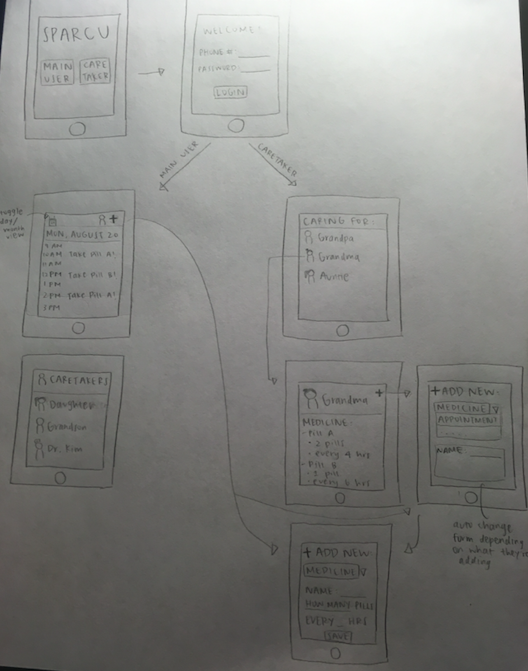 SPARCU
MAIN USER
CARE TAKER
WELCOME!
PHONE #:
PASSWORD:
LOGIN
MAIN USER
CARETAKER
toggle day/ month view
MON, AUGUST 20
9 AM
10 AM TAKE PILL A!
11 AM
12 PM TAKE PILL B!
1 PM
2 PM TAKE PILL A!
3 PM
CARING FOR:
Grandpa
Grandma
Auntie
CARETAKERS
Daughter
Grandson
Dr. Kim
Grandma +
MEDICINE:
- Pill A
• 2 pills
• every 4 hrs
- Pill B
• 1 pill
• every 6 hrs
+ ADD NEW:
MEDICINE
APPOINTMENT
NAME
auto change
form depending
on what they're
adding
+ ADD NEW:
MEDICINE
NAME
HOW MANY PILLS
EVERY _ HRS
SAVE